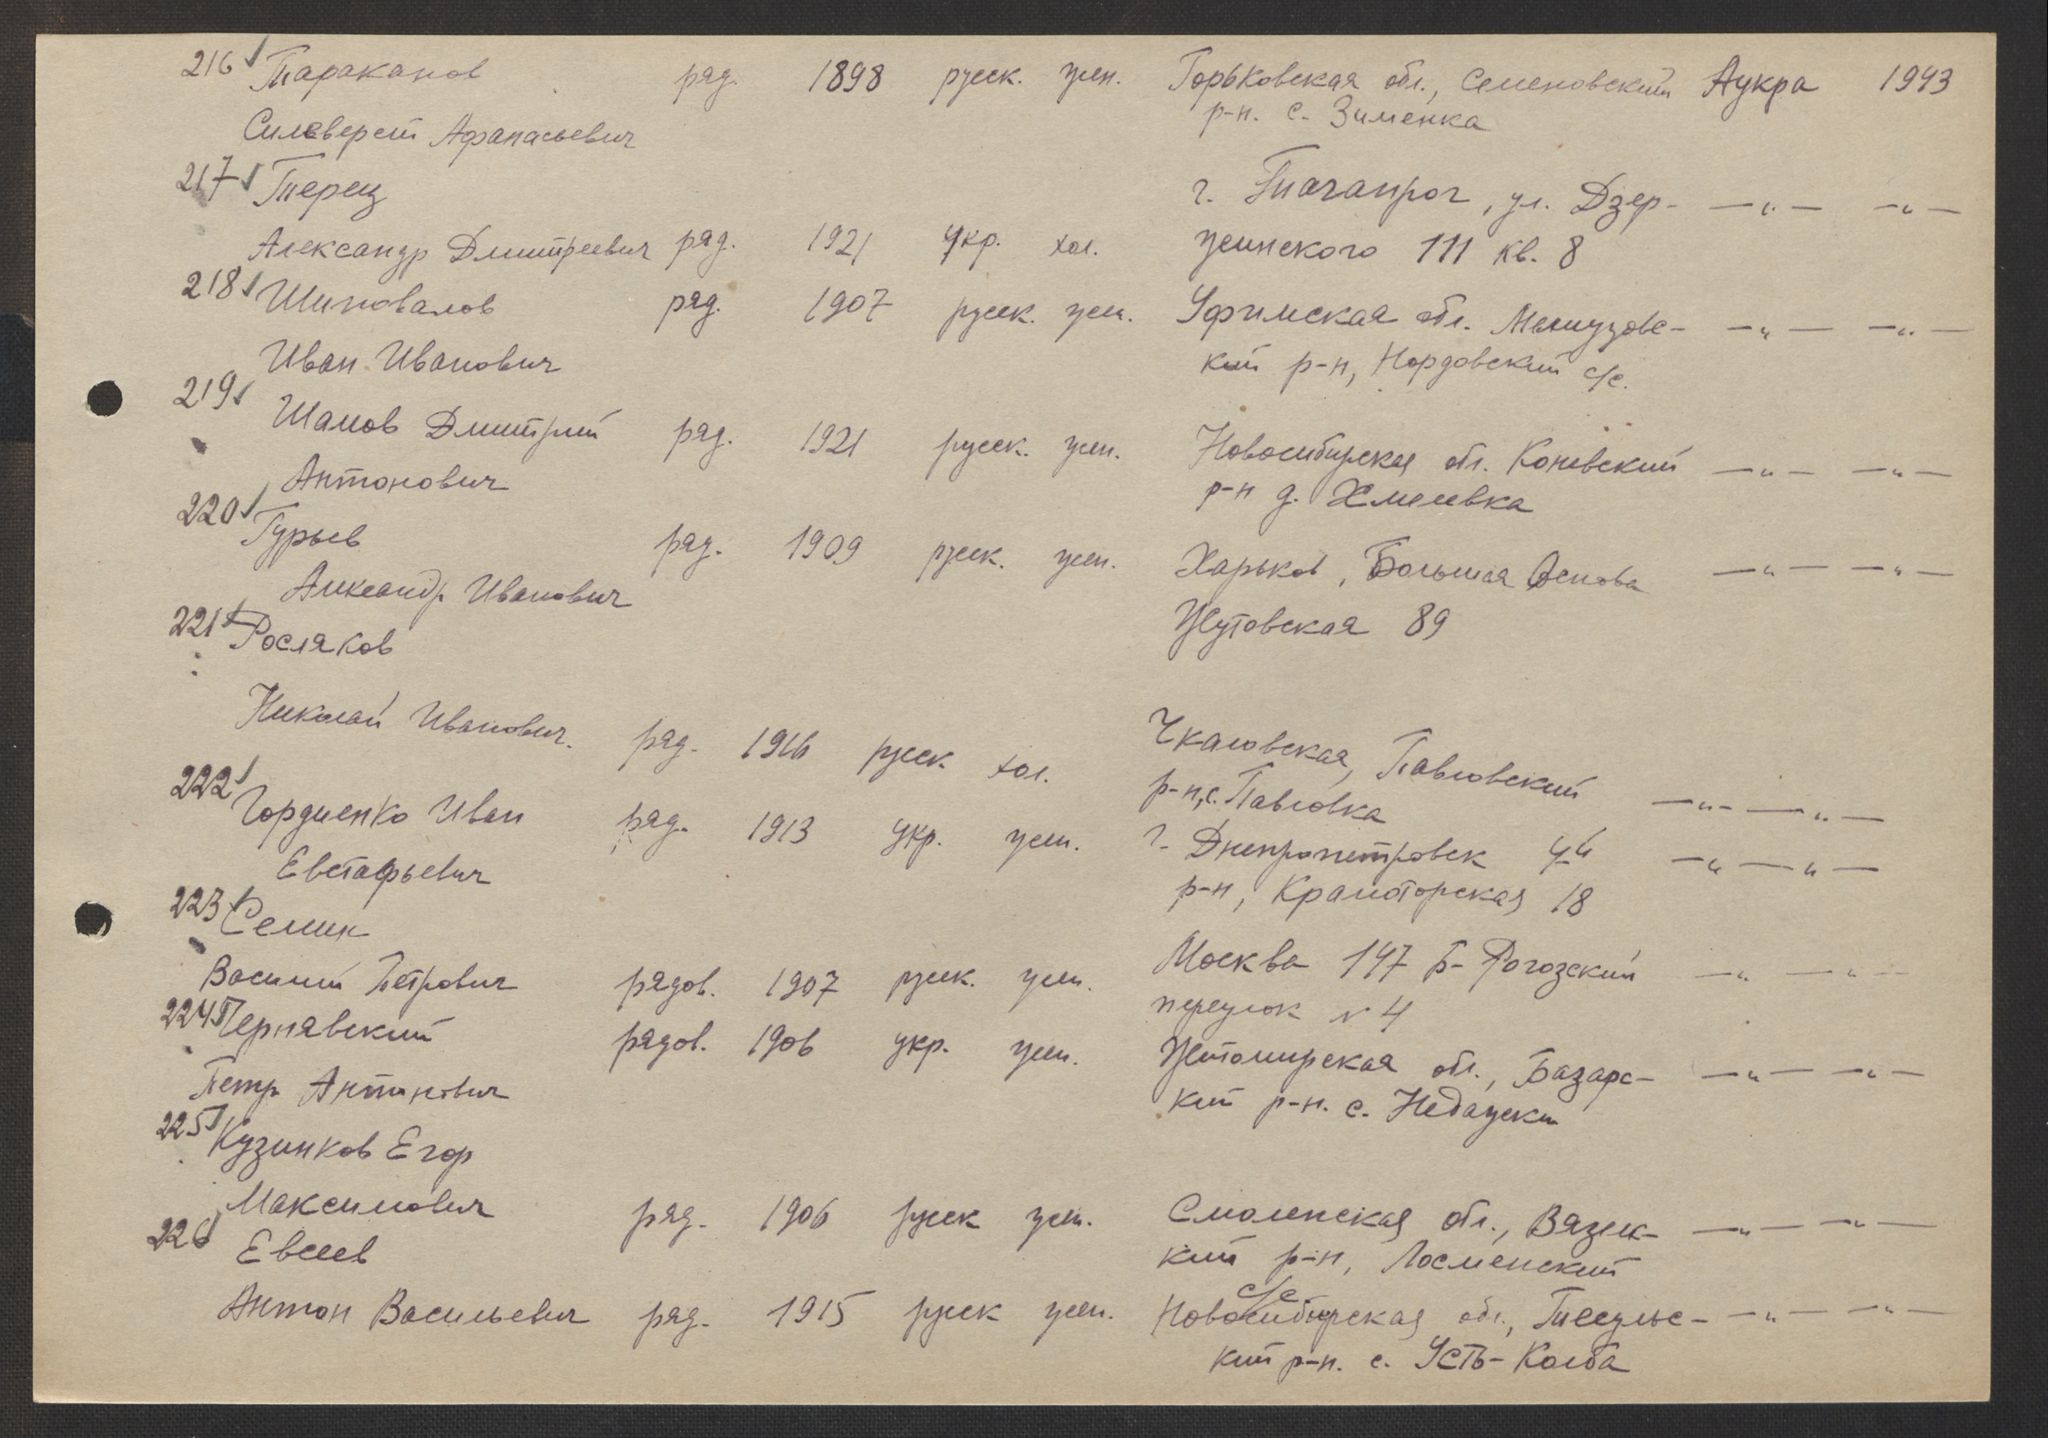 216 Тараканов ряд. 1898 русск. жен. Горьковская обл., Семеновский Аукра 1943
р-н. с. Зименка
Силеверст Афанасьевич
217 Терец г. Таганрог, ул. Дзер- —"— —"—
Александр Дмитреевич ряд. 1921 Укр. хол. жинского 111 кв. 8
218 Шиповалов ряд. 1907 русск. жен. Уфимская обл. Мелиузовс- —"— —"—
Иван Иванович кий р-н, Нордовский с/с.
219 Шамов Дмитрий ряд. 1921 русск. жен. Новосибирская обл. Коневский —"— —"—
Антонович р-н д. Хмелевка
220 Гурьев ряд. 1909 русск. жен. Харьков, Большая Основа —"— —"—
Александр Иванович Жутовская 89
221 Росляков
Николай Иванович. ряд. 1916 русск хол. Чкаловская, Павловский —"— —"—
р-н, с. Павловка
222 Гордиенко Иван ряд. 1913 укр. жен. г. Днепропетровск —"— —"—
Евстафьевич р-н, Краматорская 18
223 Семин
Василий Петрович рядов. 1907 русск. жен. Москва 147 Б-Рогозский —"— —"—
переулок N 4
224 Чернявский рядов. 1906 укр. жен. Житомирская обл., Базарс- —"— —"—
Петр Антонович кий р-н. с. Недашки
225 Кузинков Егор
Максимович ряд. 1906 русск жен. Смоленская обл., Вязем- —"— —"—
кий р-н, Лосменский
с/с.
226 Евсеев
Антон Васильевич ряд. 1915 русск жен. Новосибирская обл., Тисульс- —"— —"—
кий р-н. с. Усть-Колба